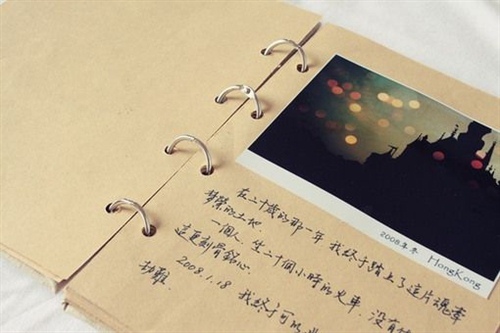 2008年冬 HongKong
在二十歲的那一年 我終於踏上了這片魂牽
夢縈的土地.
一個人. 坐二十個小時的火車. 沒有
這更刻骨銘心.
2008.1.18 我終于可以
劫難.